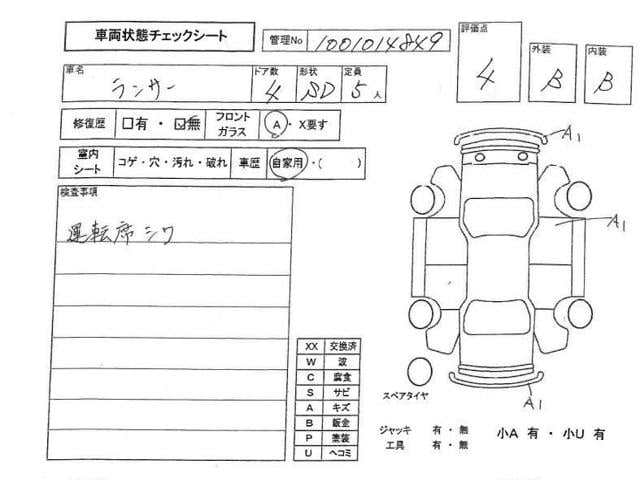 車両状態チェックシート
管理No 1001014849
評価点 4
外装 B
内装 B
車名 ランサー
ドア数 4
形状 SD
定員 5人
修復歴 □有・☑無
フロントガラス A・X要す
室内シート コゲ・穴・汚れ・破れ
車歴 自家用・( )
検査事項
運転席シワ
A1
A1
A1
XX 交換済
W 波
C 腐食
S サビ
A キズ
B 鈑金
P 塗装
U ヘコミ
スペアタイヤ
ジャッキ 有・無
工具 有・無
小A 有・小U 有